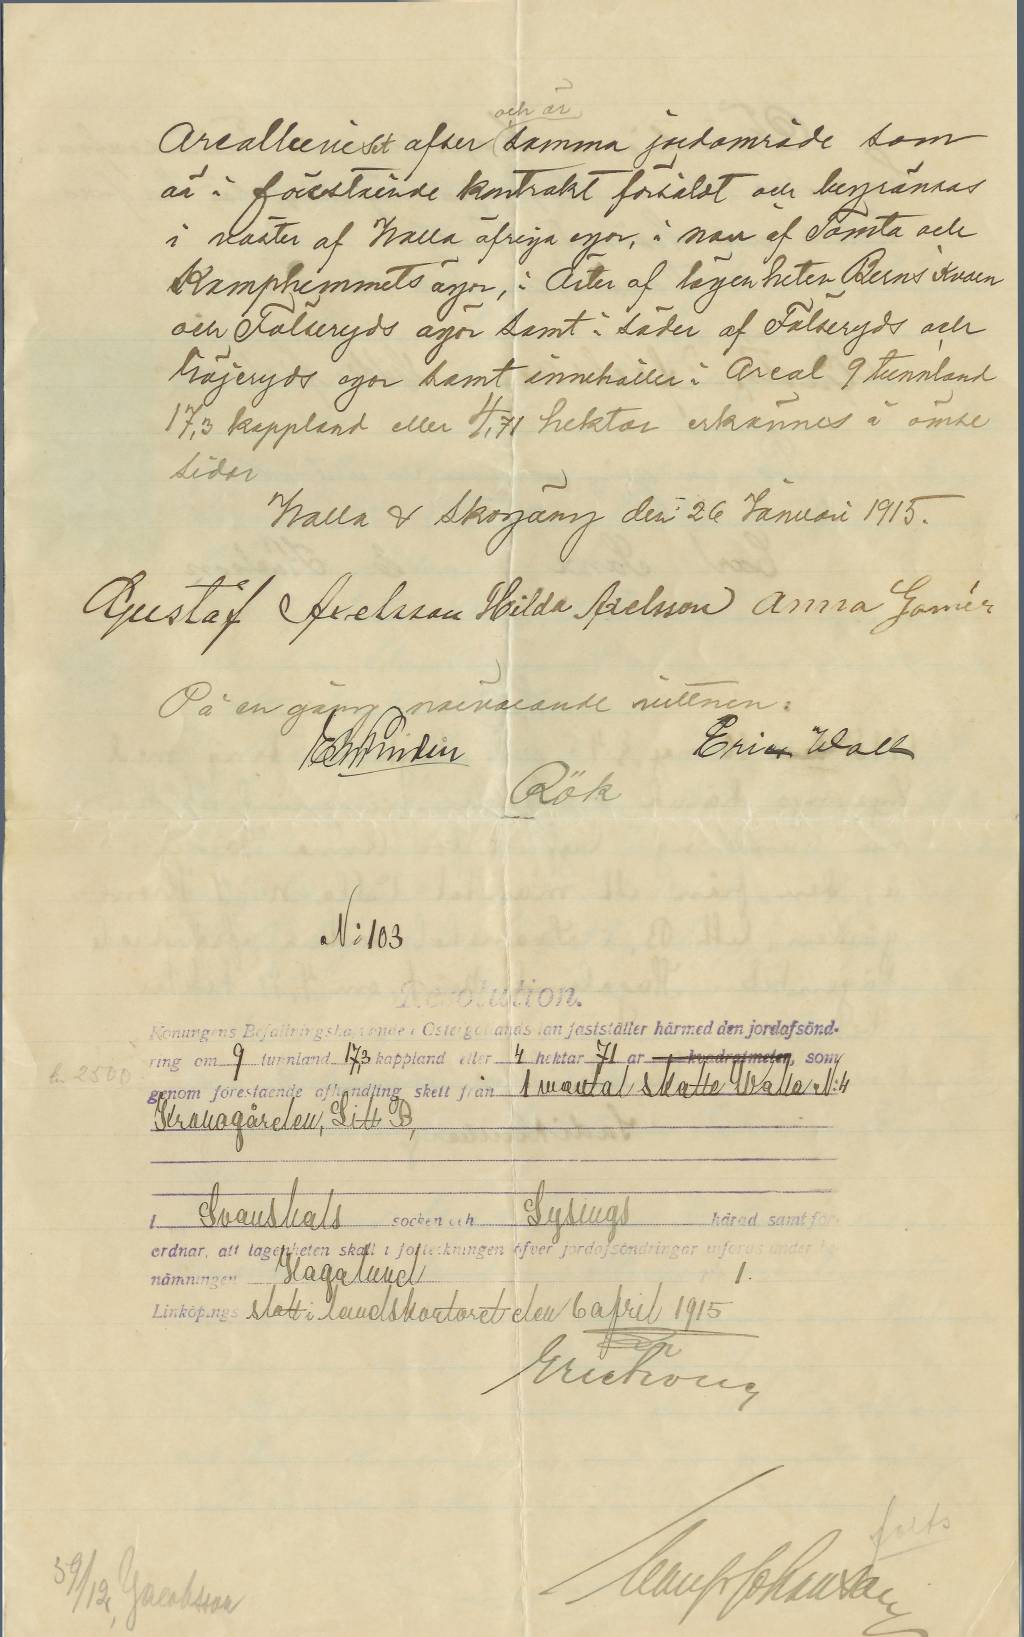 och är
Areallene set afser samma jordområde som
är i förestående kontrakt försåldt och begränsas
i väster af Walla öfriga egor, i norr af Tomta och
Kamphemmets ägor, i Öster af lägenheten Berns Kvarn
och Fålseryds ägor samt i söder af Fålseryds och
Höjeryds egor samt innehåller i Areal 9 tunnland
17,3 kappland eller 4,71 hektar erkännes å ömse
sidor
Walla & Skogäng den 26 Januari 1915.
Gustaf Axelsson Hilda Axelsson Anna Gomér
På en gång närvarande vittnen:
Erik Wall
Rök
N: 103
Resolution.
Konungens Befallningshafvande i Östergötlands län fastställer härmed den jordafsönd-
ring om 9 tunnland 17,3 kappland eller 4 hektar 71 ar kvadratmeter, som
genom förestående afhandling skett från 1 mantal skatte Walla N:4
Kronogården, Litt B,
i Svanshals socken och Lysings härad samt för-
ordnar, att lägenheten skall i förteckningen öfver jordafsöndringar införas under be-
nämningen Hagalund 1.
Linköpings slott i landskontoret den 6 april 1915
Johansson
forts
39/12, Jacobsson